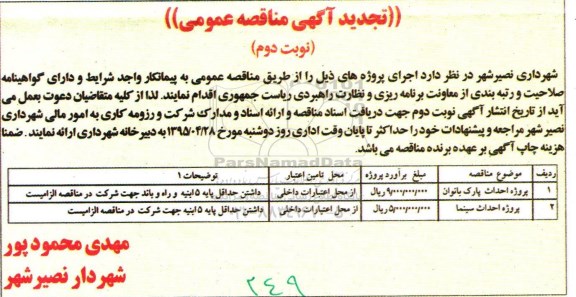 ((تجدید آگهی مناقصه عمومی))
(نوبت دوم)
شهرداری نصیرشهر در نظر دارد اجرای پروژه های ذیل را از طریق مناقصه عمومی به پیمانکار واجد شرایط و دارای گواهینامه
صلاحیت و رتبه بندی از معاونت برنامه ریزی و نظارت راهبردی ریاست جمهوری اقدام نمایند. لذا از کلیه متقاضیان دعوت بعمل می
آید از تاریخ انتشار آگهی نوبت دوم جهت دریافت اسناد مناقصه و ارائه اسناد و مدارک شرکت و رزومه کاری به امور مالی شهرداری
نصیر شهر مراجعه و پیشنهادات خود را حداکثر تا پایان وقت اداری روز دوشنبه مورخ ۱۳۹۵/۰۴/۲۸ به دبیرخانه شهرداری ارائه نمایند. ضمنا
هزینه چاپ آگهی بر عهده برنده مناقصه می باشد.
ردیف موضوع مناقصه مبلغ برآورد پروژه محل تامین اعتبار توضیحات ۱
۱ پروژه احداث پارک بانوان ۹,۰۰۰,۰۰۰,۰۰۰ ریال از محل اعتبارات داخلی داشتن حداقل پایه ۵ ابنیه و راه و باند جهت شرکت در مناقصه الزامیست
۲ پروژه احداث سینما ۵,۰۰۰,۰۰۰,۰۰۰ ریال از محل اعتبارات داخلی داشتن حداقل پایه ۵ ابنیه جهت شرکت در مناقصه الزامیست
مهدی محمود پور
شهردار نصیر شهر
۲۴۹
ParsNamadData